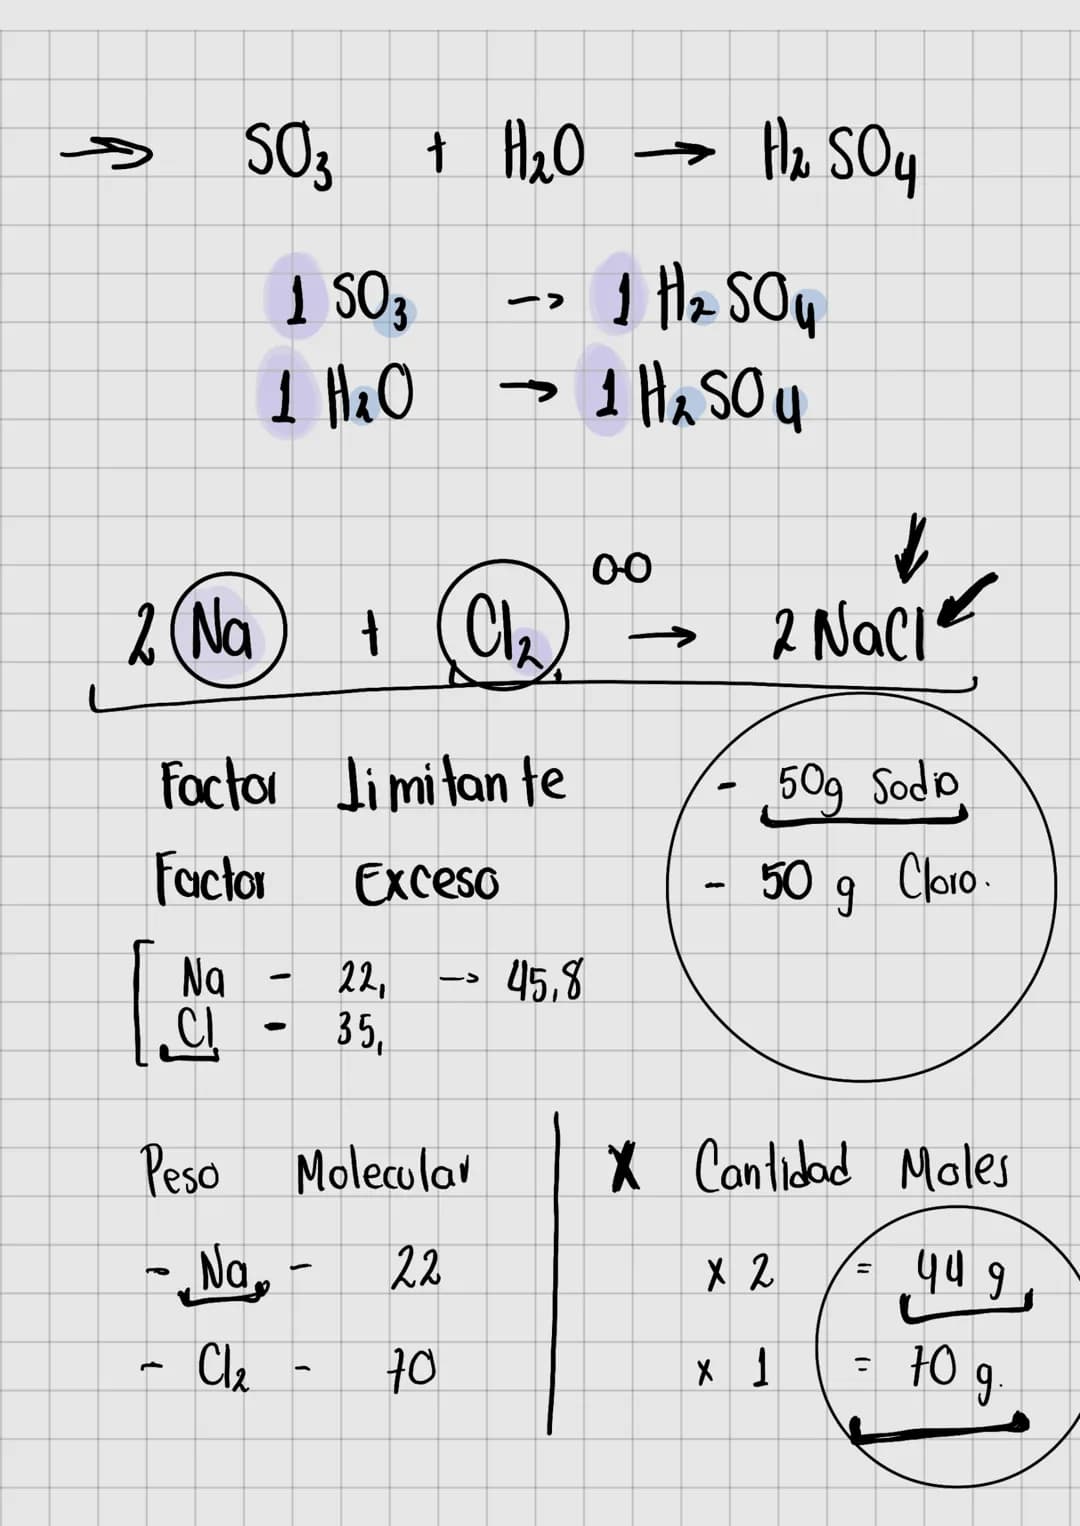 => SO3 + H2O → H2SO4
1 SO3 --> 1 H2SO4
1 H2O → 1 H2SO4
2 Na + Cl2 → 2 NaCl
Factor limitante
Factor Exceso
- 50g Sodio
- 50 g Cloro.
Na - 22, --> 45,8
Cl - 35,
Peso Molecular X Cantidad Moles
- Na - 22 x 2 = 44 g
- Cl2 - 70 x 1 = 70 g.